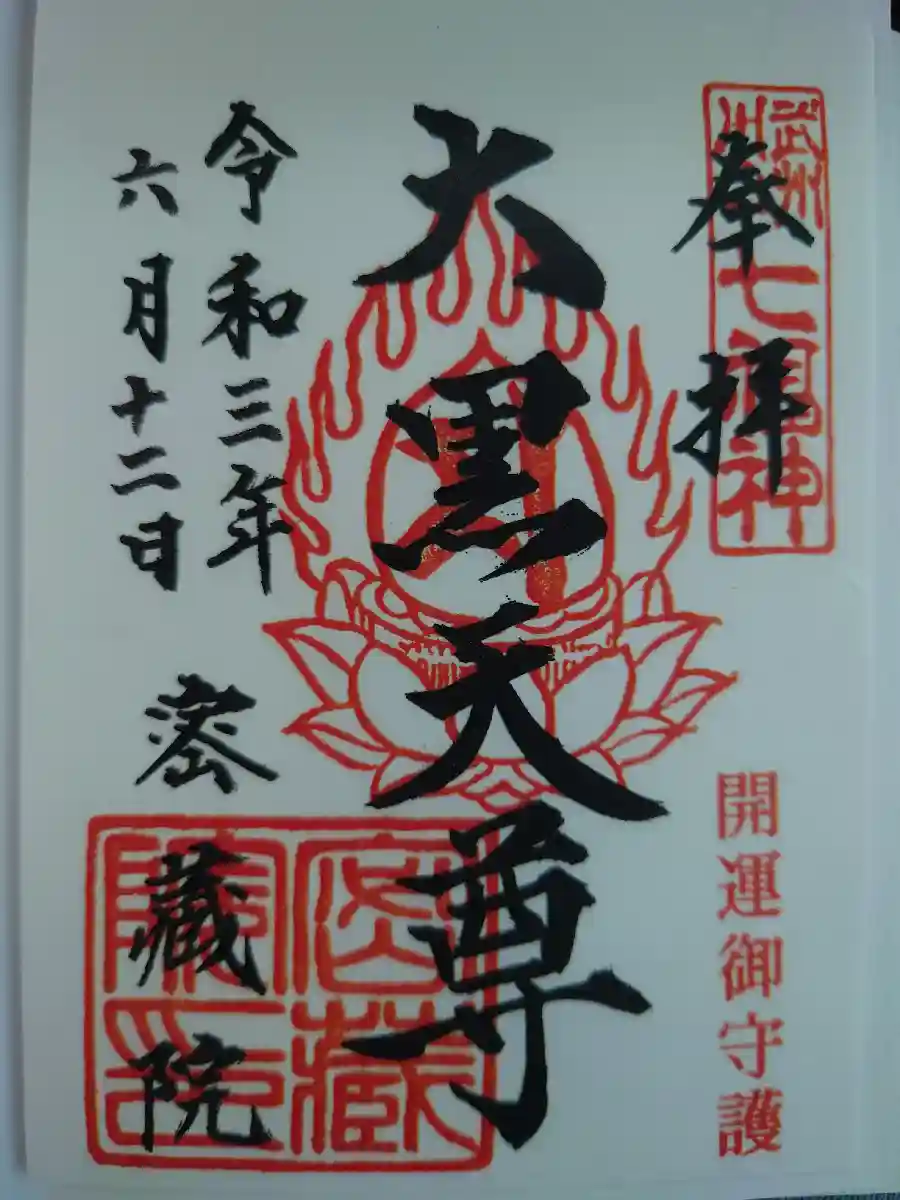 武州川口七福神
奉拝
開運御守護
大黒天尊
令和三年
六月十二日
密藏院
密藏院印